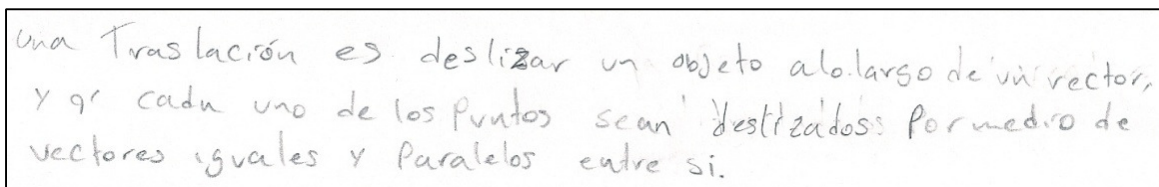 una Traslación es deslizar un objeto a lo largo de un vector,
y q' cada uno de los Puntos sean deslizados Por medio de
vectores iguales y Paralelos entre si.